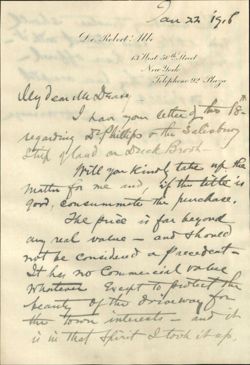 Jan 22 1916
Dr. Robert Abbe
13 West 50th Street
New York
Telephone 92 Plaza
My dear Mr Deasy
I have your letter of Jan 18th
regarding Dr Phillips & the Salisbury
strip of land on Duck Brook
Will you kindly take up the
matter for me and, if the title is
good, consummate the purchase.
The price is far beyond
any real value – and should
not be considered a precedent –
It has no commercial value
whatever except to protect the
beauty of the driveway for
the town interests – and it
is in that spirit I took it up,